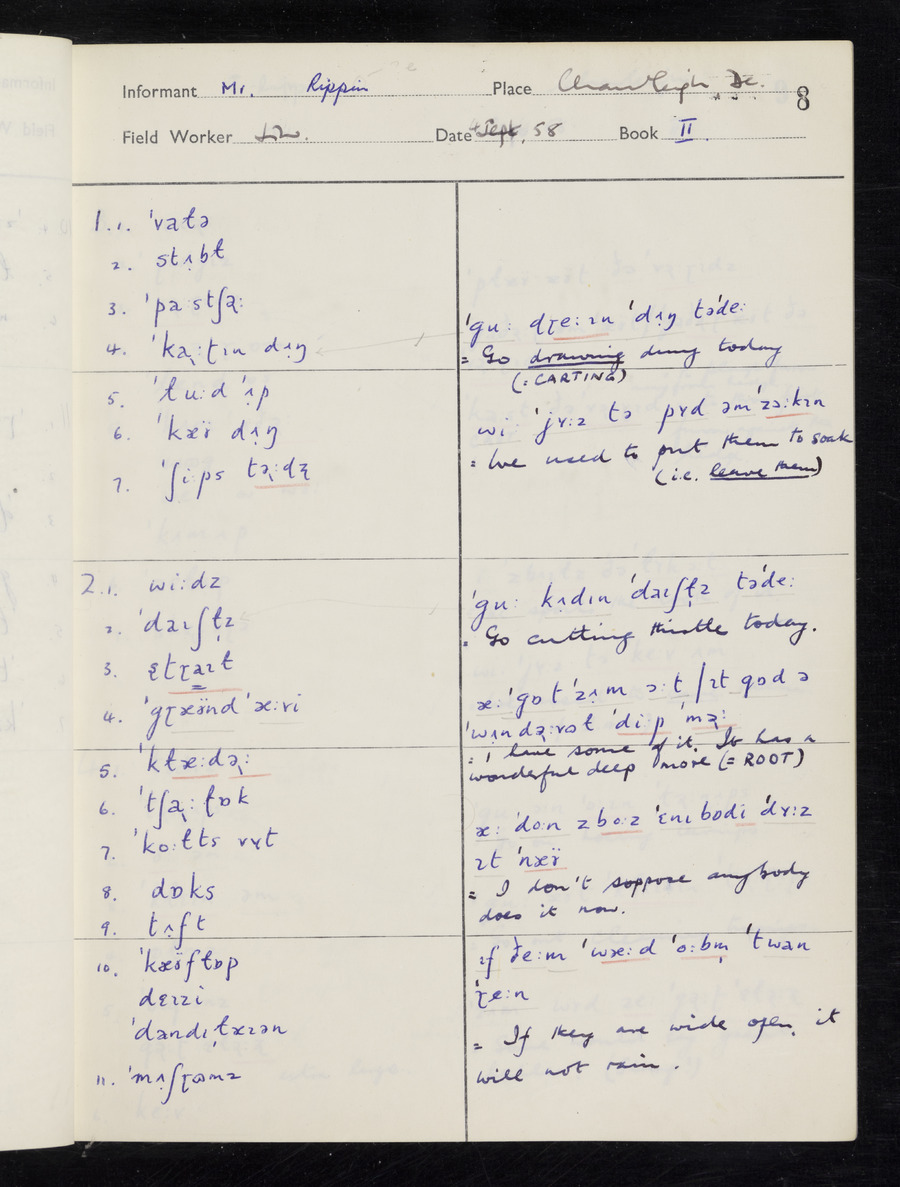 Informant Mr. Rippin Place Chawleigh, De. 8
Field Worker Date Sept, 58 Book II.
1.1. ˈvatə
2. stʌbt
3. ˈpastʃa̢:
4. ˈka̢:tɪn dʌŋ
5. ˈtu:d ˈʌp
6. ˈkæÿ dʌŋ
7. ˈʃi:ps
2.1. wi:dz
2. ˈdaɪʃt̩z
3.
4.
5.
6.
7. ˈko:lts
8. dɒks
9. tʌft
10. ˈkæÿftɒp
dɛɪzi
11.
ˈgu: ˈdʌŋ təˈde:
= Go drawing dung today
(= CARTING)
wi ˈjʏ:z tə pʏd əmˈzə:kɪn
= We used to put them to soak
(i.e. leave them)
ˈgu: kʌdɪn ˈdaɪʃt̩z təˈde:
= Go cutting thistle today.
æ: ˈgɒt ˈzʌm ə:t / ɪt gɒd ə
ˈdi:p ˈma̢:
= I have some of it. It has a
wonderful deep more (= ROOT)
æ: ˈdo:n zbo:z ˈɛnɪbɒdi ˈdʏ:z
ɪt ˈnæÿ
= I don't suppose anybody
does it now.
ɪf ðe:m ˈwæ:d ˈo:bm̩ ˈtwan
ˈɽe:n
= If they are wide open, it
will not rain.